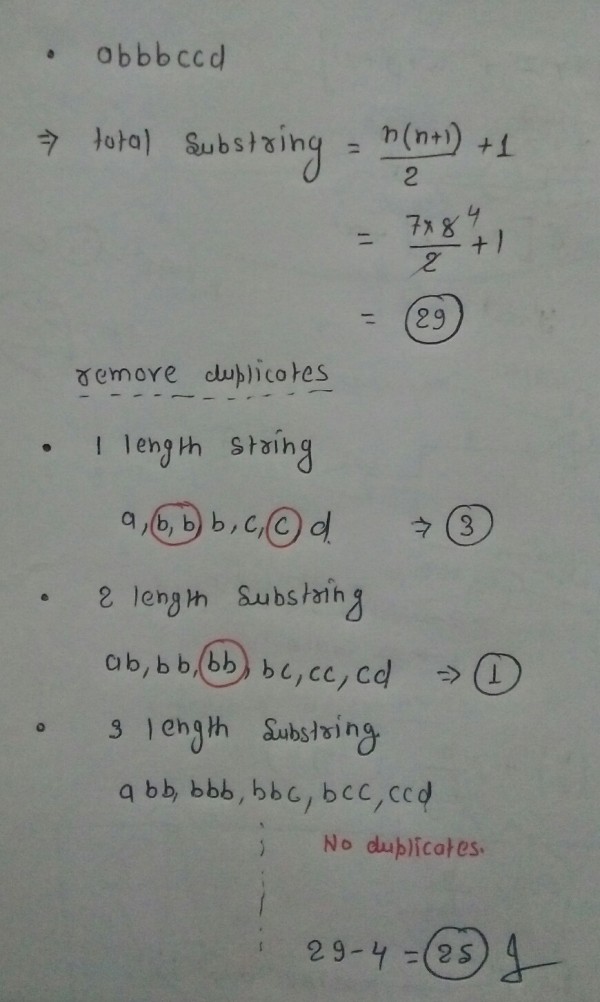 • abbbccd
⇒ total substring = n(n+1)/2 + 1
= 7×8 4/2 + 1
= 29
remove duplicates
• 1 length string
a, b, b, b, c, c, d ⇒ 3
• 2 length substring
ab, bb, bb, bc, cc, cd ⇒ 1
• 3 length substring
abb, bbb, bbc, bcc, ccd
No duplicates.
29-4 = 25